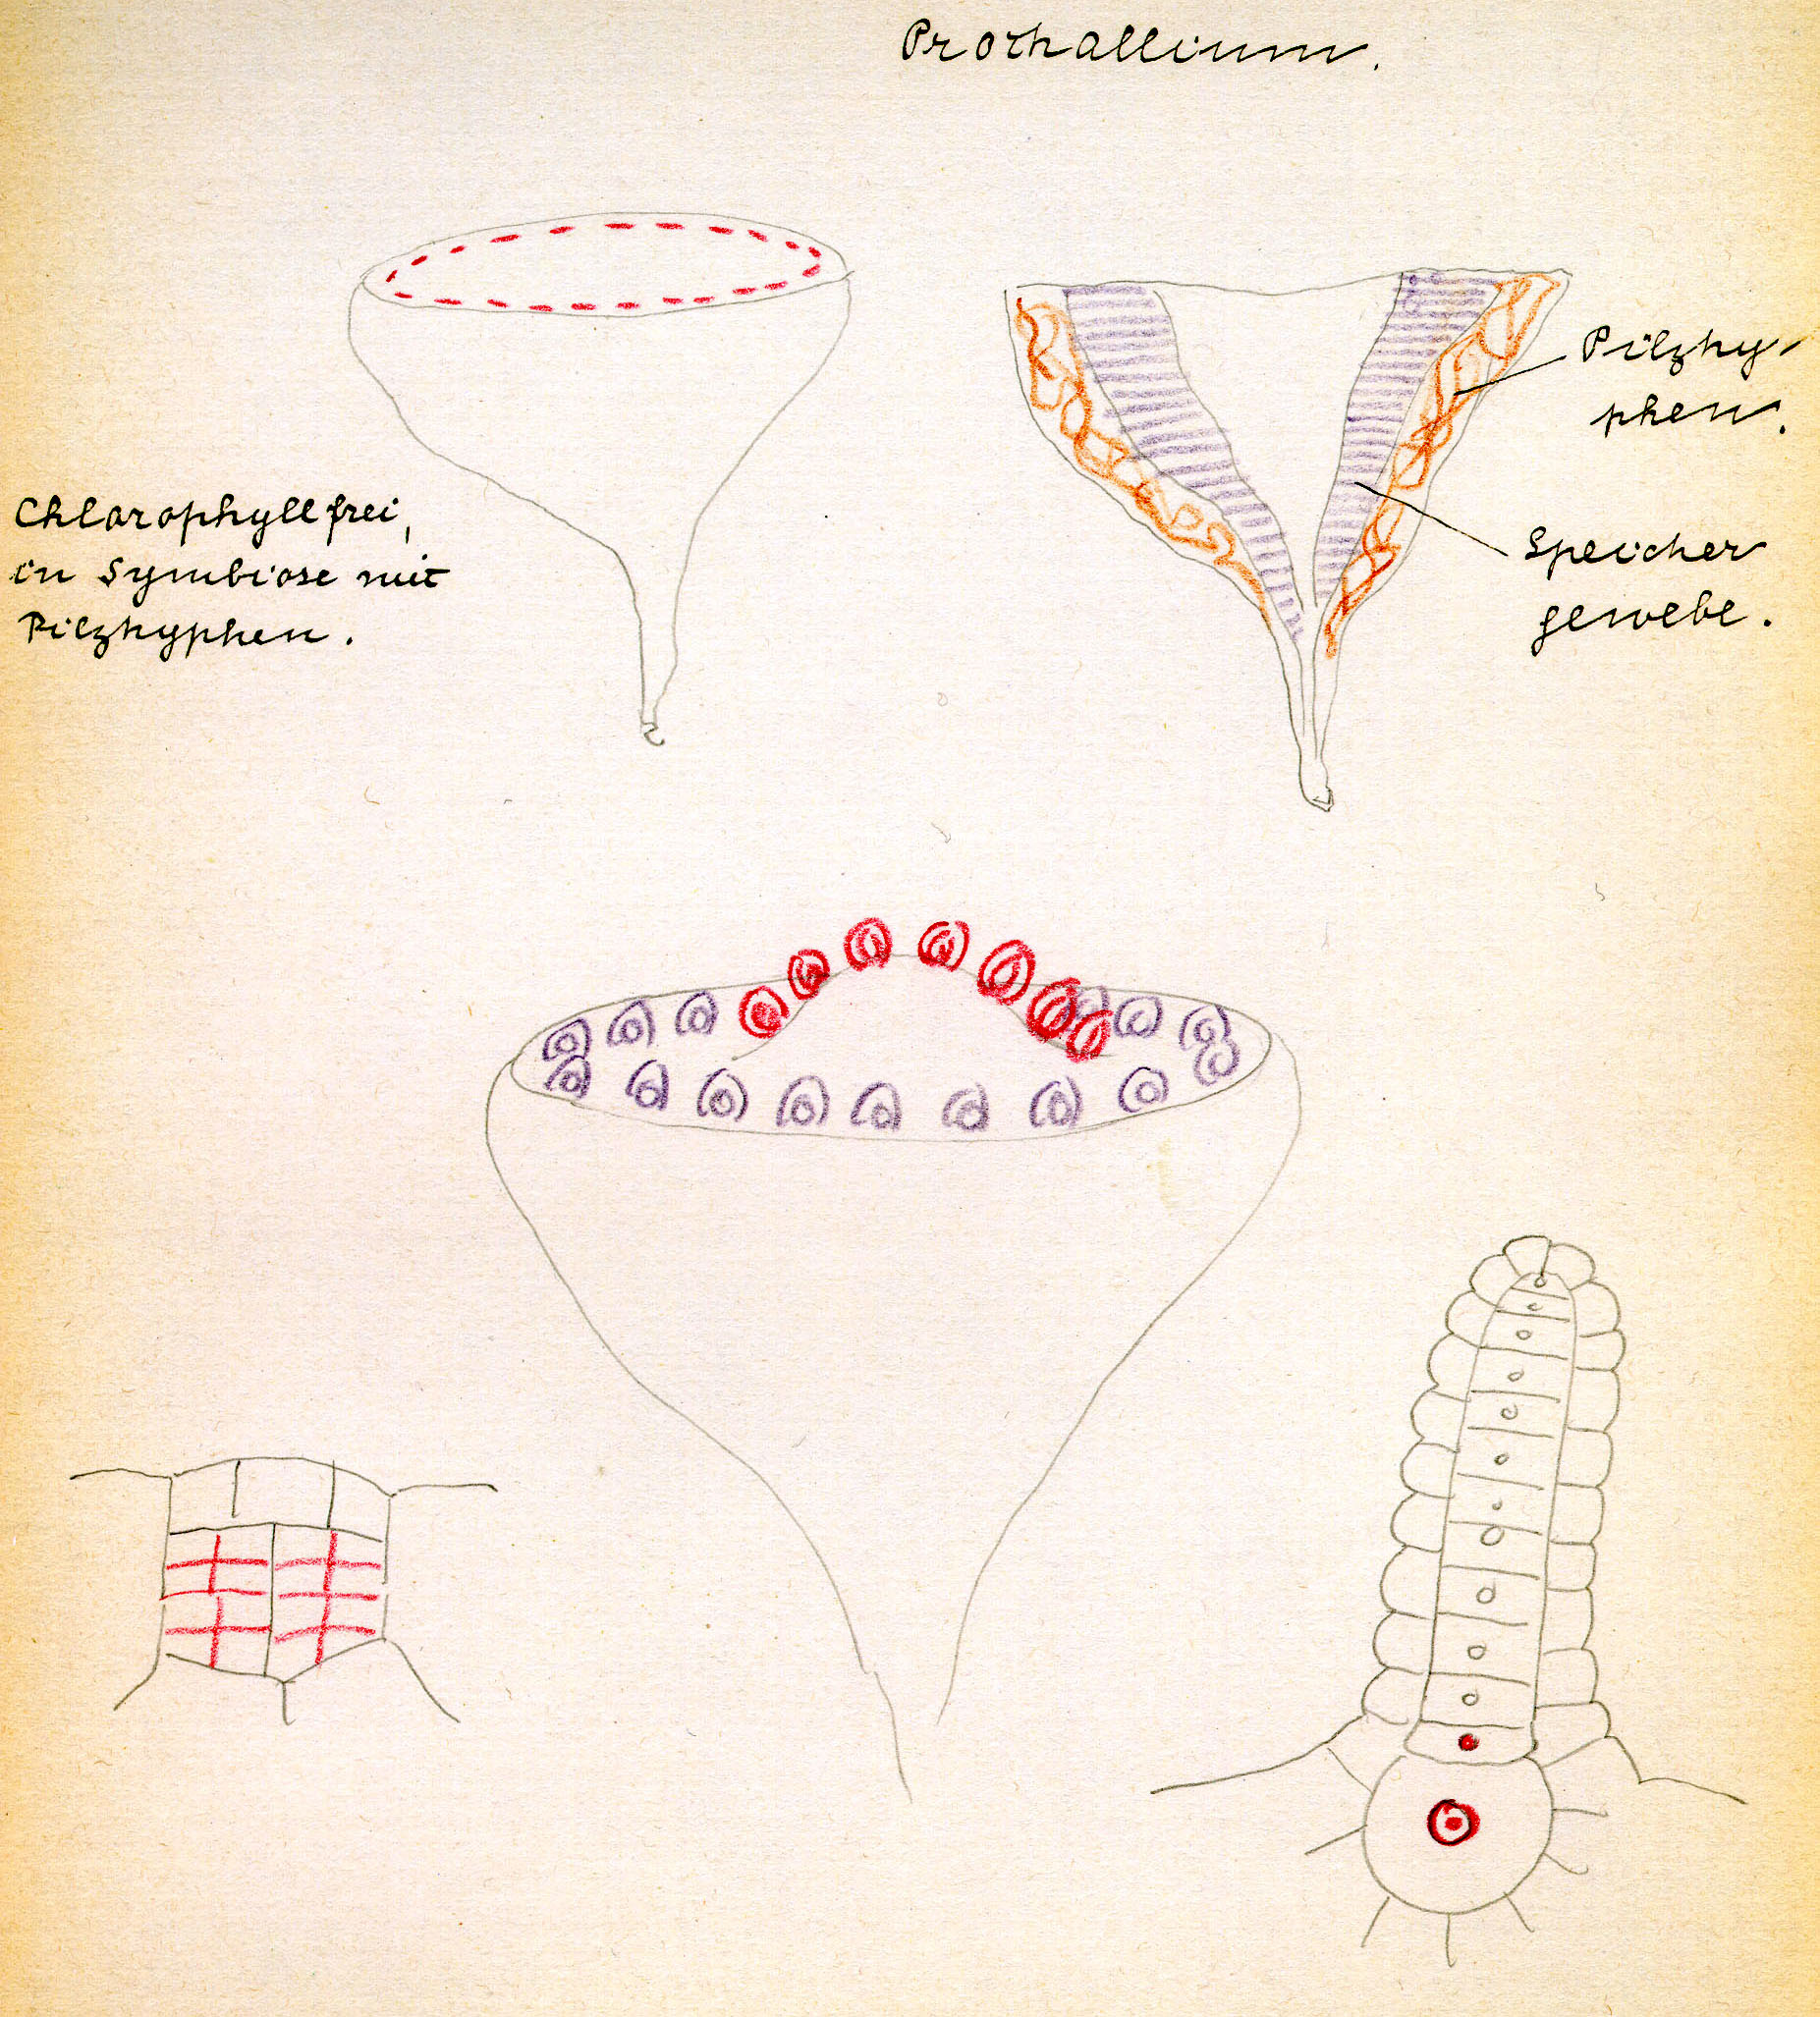 Prothallium.
Chlorophyllfrei,
in Symbiose mit
Pilzhyphen.
Pilzhy-
phen.
Speicher
gewebe.